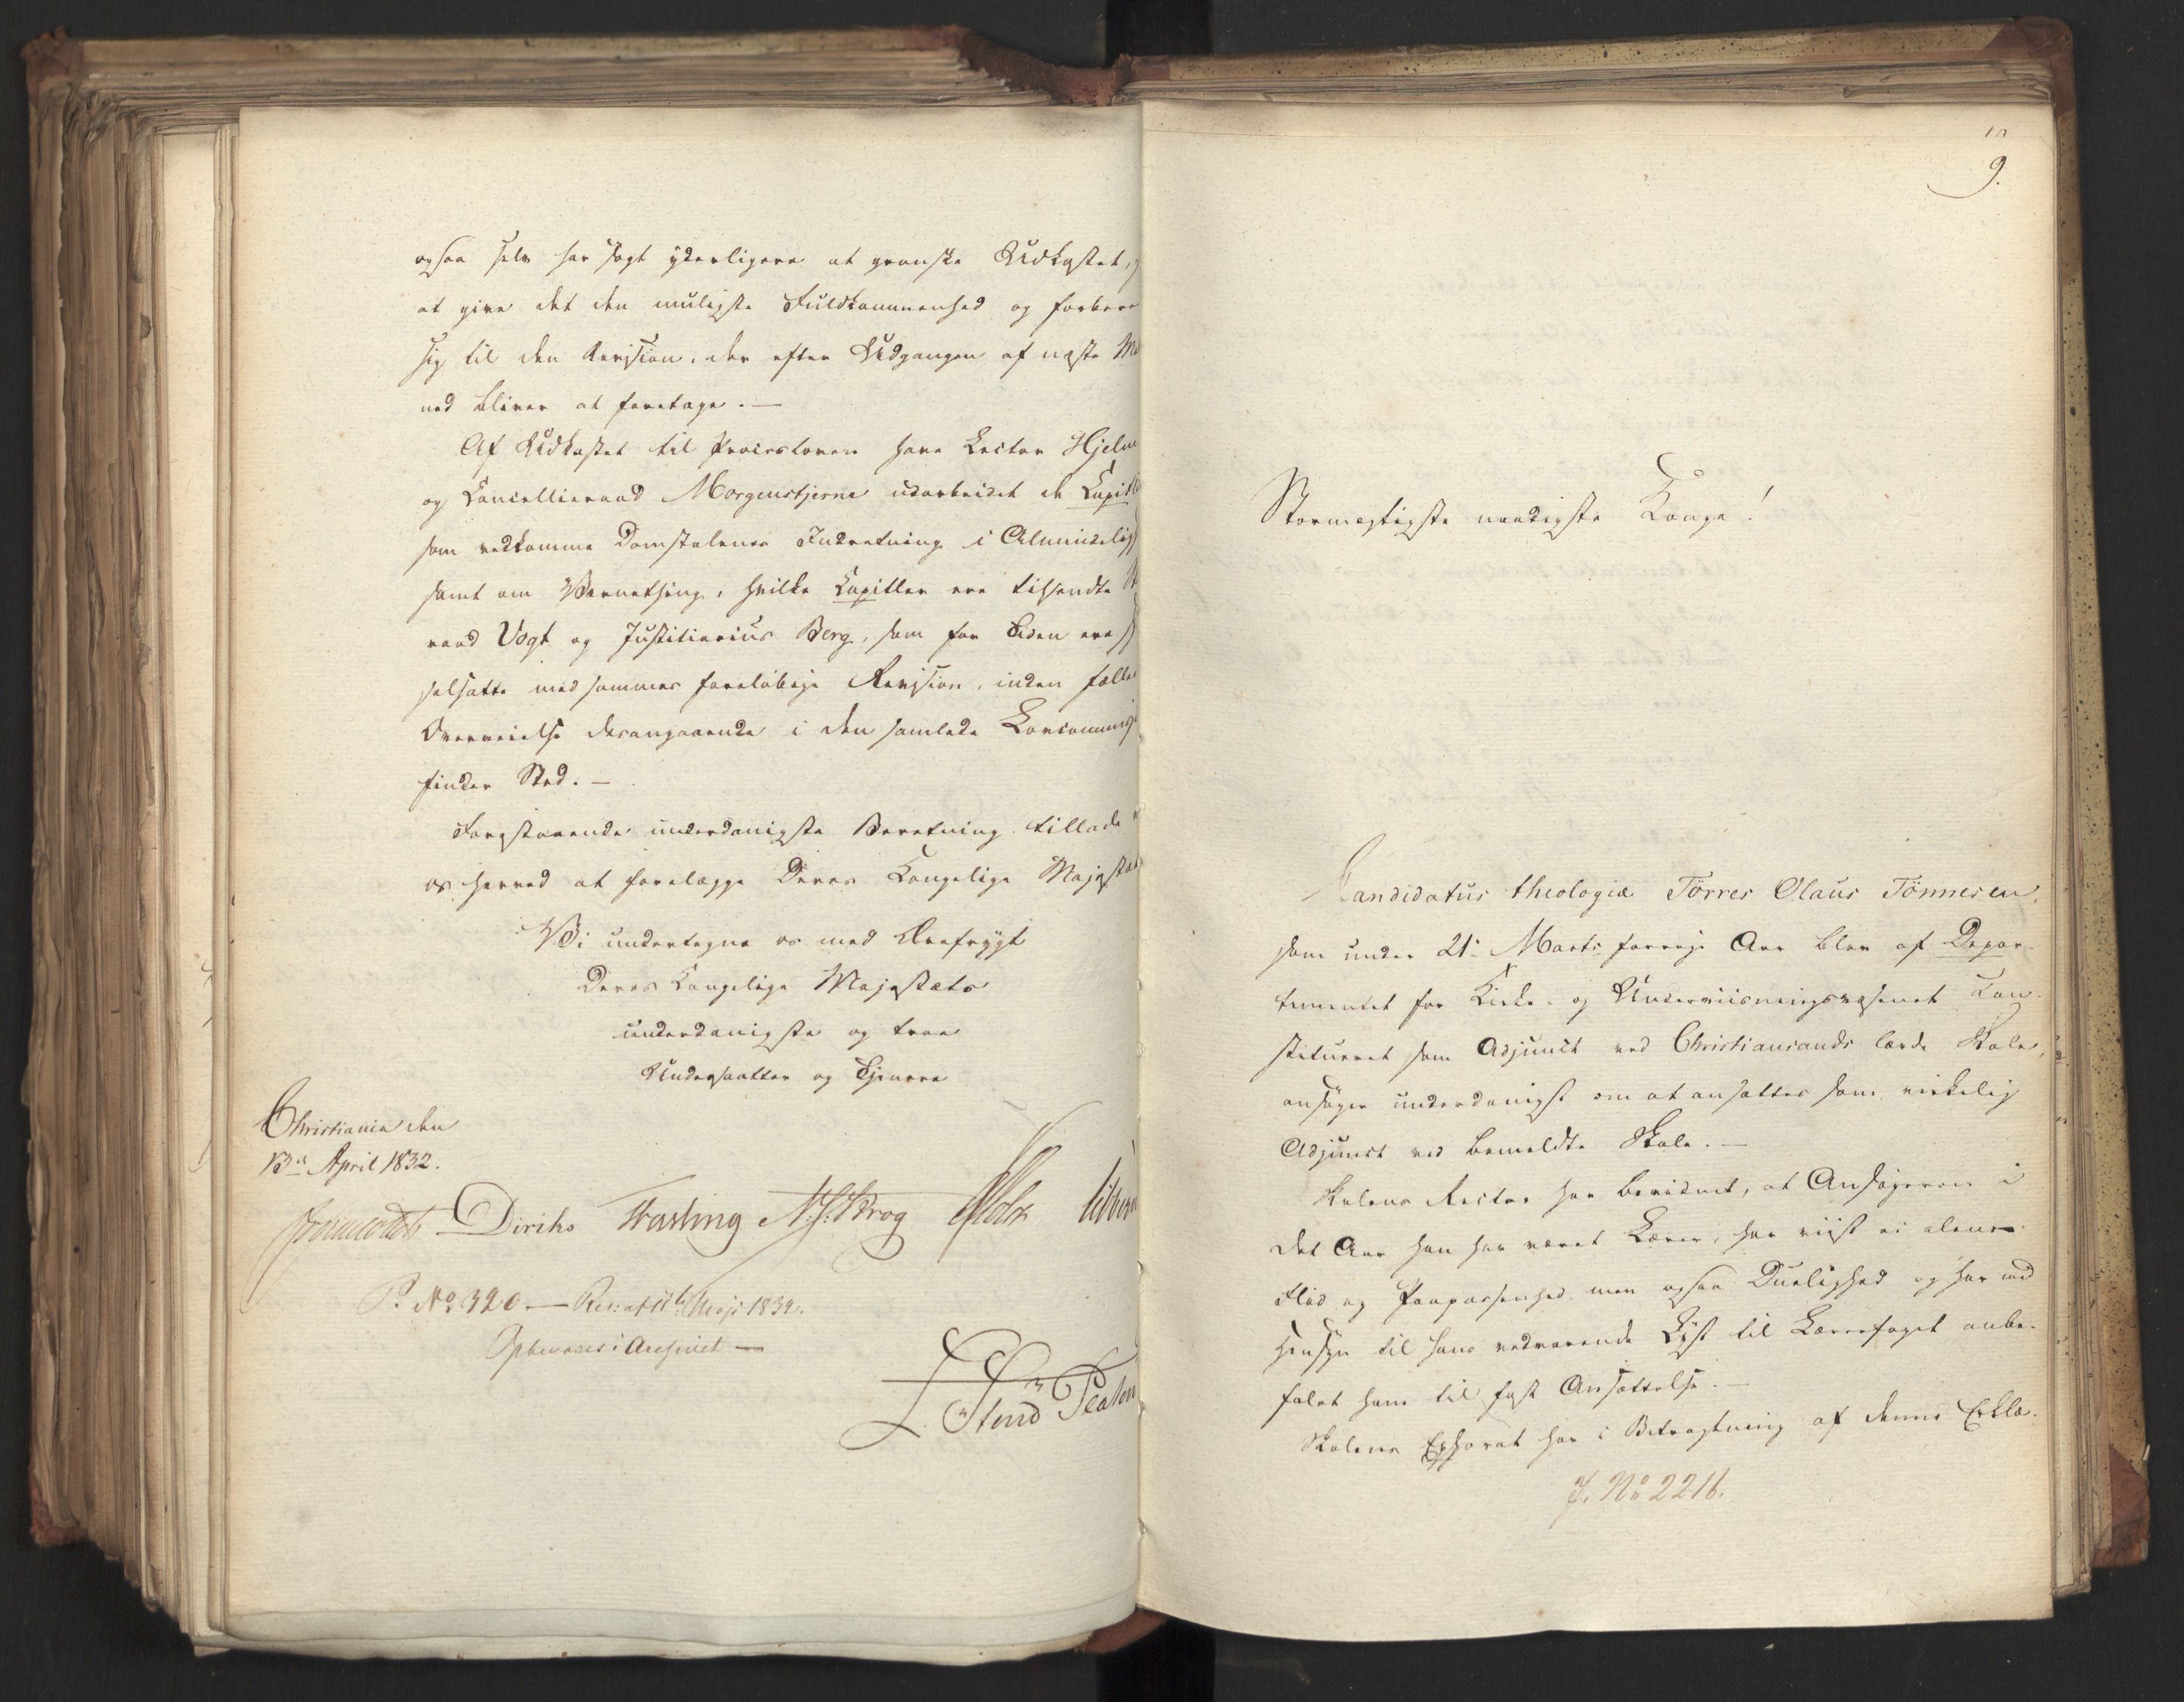 ogsaa selv har søgt yderligere at granske Udkastet,
at give det den muligste Fuldkommenhed og forbere
sig til den Revision, der efter Udgangen af næste Ma
ned bliver at foretage. —
Af Udkastet til Procesloven have Lector Hjelm
og Cancellieraad Morgenstjerne udarbeidet de Capitl
som vedkomme Domstolenes Indretning i Almindelig
samt om Vernething, hvilke Capitler ere tilsendte
raad Vogt og Justitiarius Berg, som for Tiden ere
selsatte med sammes foreløbige Revision, inden fælles
Overveielse derangaaende i den samlede Lovcommis
finder Sted. —
Foranstaaende underdanigste Beretning tillade
os herved at forelægge Deres Kongelige Majestæt
Vi undertegne os med Ærefrygt
Deres Kongelige Majestæts
underdanigste og troe
Undersaatter og Tjenere
Christiania den
13de April 1832.
Diriks Fasting Krog Holst
P. No 320. — Res: af 11te Maji 1832.
Opbevares i Archivet —
9.
Stormægtigste naadigste Konge!
Candidatus theologiæ Törres Olaus Tönnesen,
som under 21. Marts forrige Aar blev af Depar-
tementet for Kirke- og Underviisningsvæsenet Con-
stitueret som Adjunct ved Christiansands lærde Skole,
ansøger underdanigst om at ansættes som virkelig
Adjunct ved bemeldte Skole. —
Skolens Rector har bevidnet, at Ansøgeren i
det Aar han har været Lærer, har viist ei alene
Flid og Paapassenhed men ogsaa Duelighed og har med
Hensyn til hans vedvarende Lyst til Lærerfaget anbe-
falet ham til fast Ansættelse. —
Skolens Ephorat har i Betragtning af denne Erklæ-
J. No 2216.